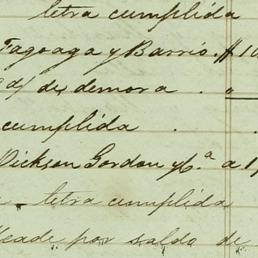 letra cumplida
Fagoaga y Barrio. $10
d/ de demora . "
cumplida .
Dickson Gordon y C.ª a 1
letra cumplida
por saldo de